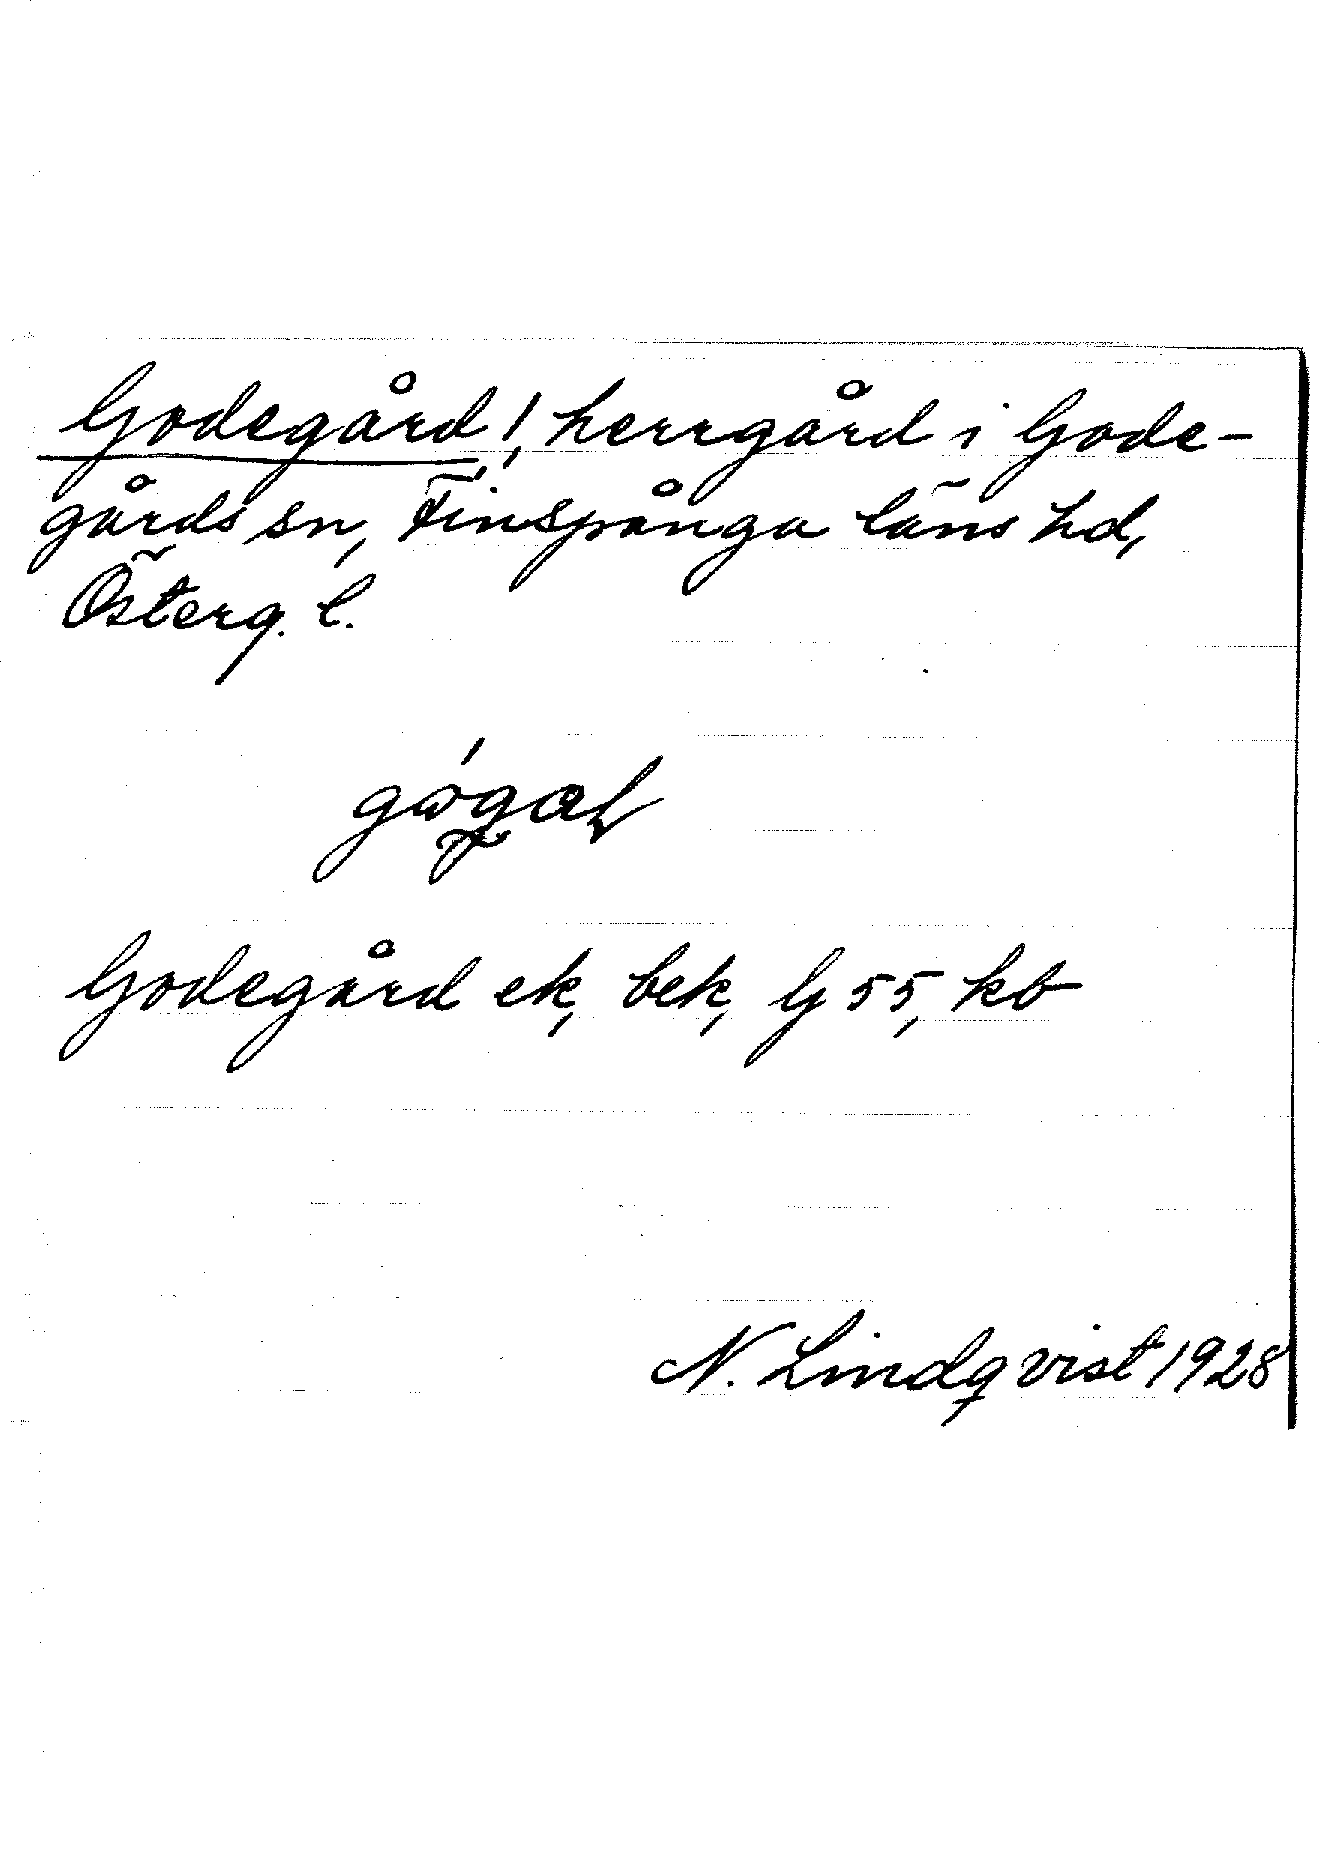 Godegård!, herrgård i Gode-
gårds sn, Finspånga läns hd,
Österg. l.
Godegård ek, bek, G 55, kb
N. Lindqvist 1928